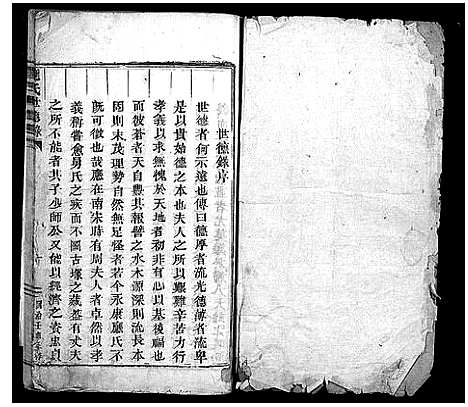 世德錄序
世德者何示遠也傳曰德厚者流光德薄者流卑
是以貴始德之本也夫人之所以艱難辛苦力行
孝義以求無愧於天地者初非有心以基後福也
而彼蒼者天自與其報譬之水木源深則流長本
固則末茂理勢自然無足怪者若今永康應氏不
既可徵也哉應在南宋時有周夫人者卓然以孝
義稱嘗愈舅氏之疾而不圖古塚之藏蓋有丈夫
之所不能者其子少師公又能以經濟之資忠貞
氏世德錄
序